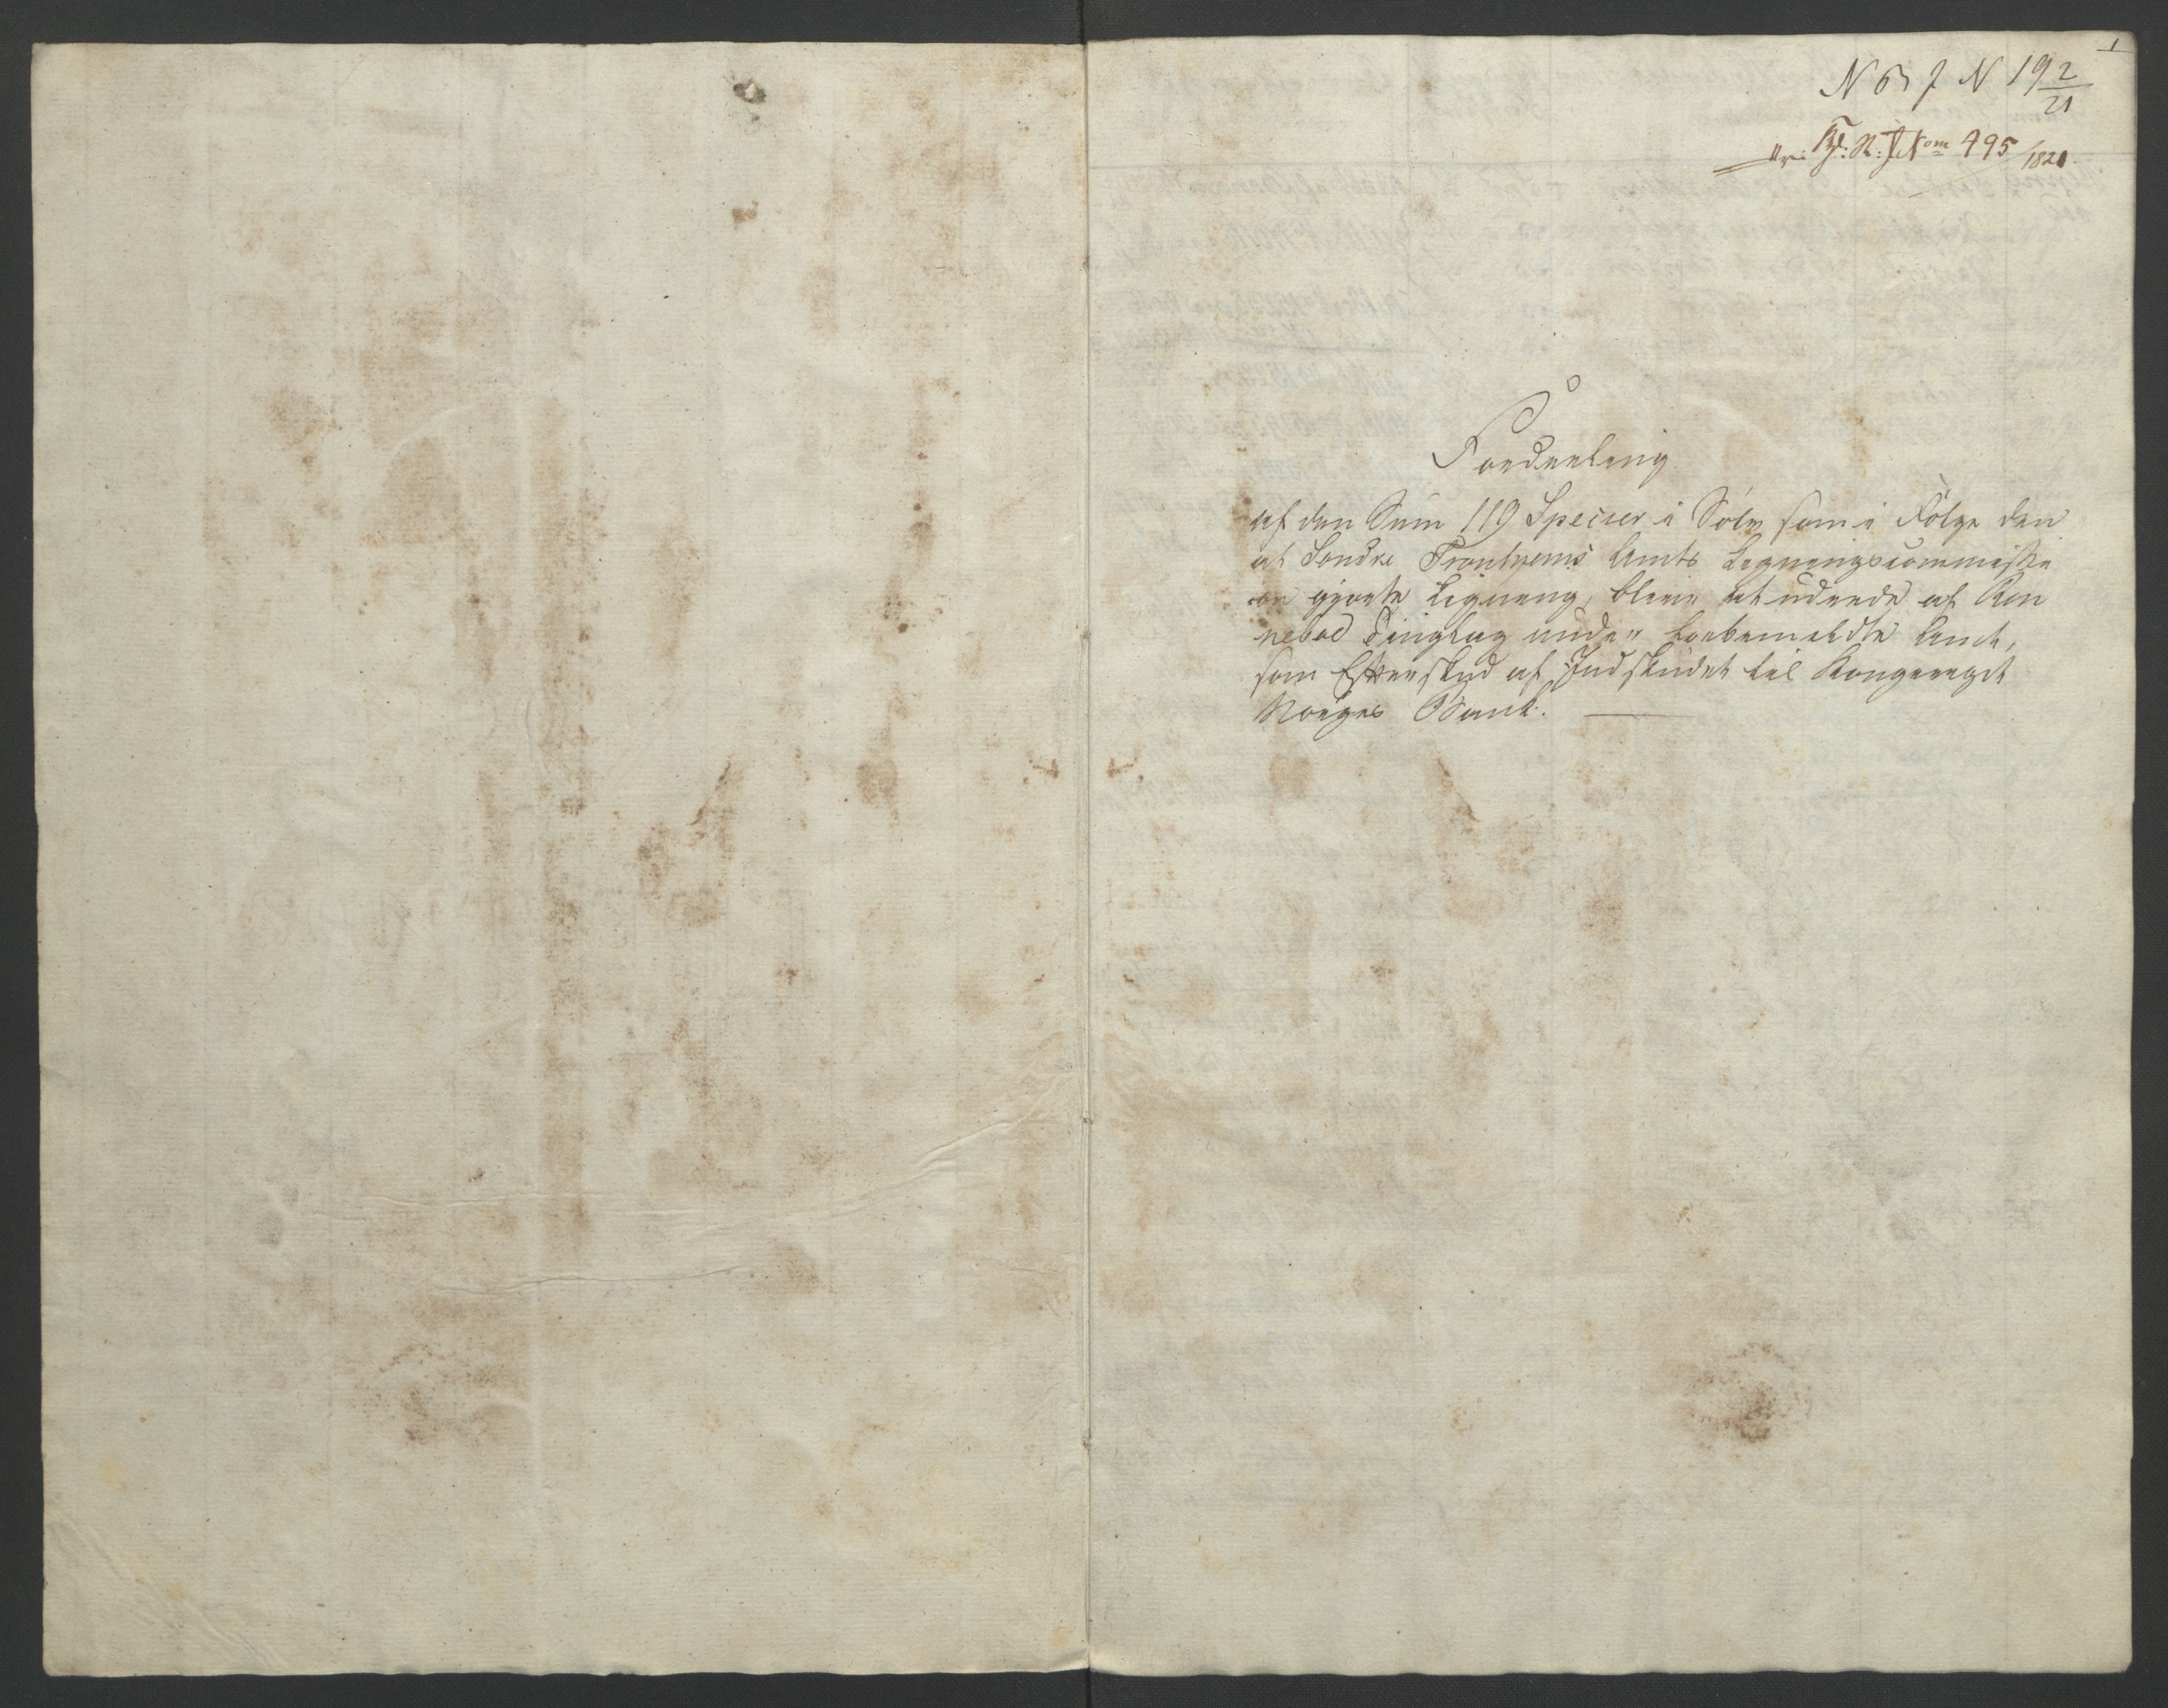 1
N 6 J N 19 2/21
N: J. Nom 495/1821
Fordeeling
af den Sum 119 Specier i Sölv, som i Fölge den
af Söndre Trontjems Amts Ligningscommissi
on gjorte Ligning, bliver at udrede af Ren
neboe Tinglag under forbemeldte Amt,
som Efterskud af Indskudet til Kongeriget
Norges Bank.